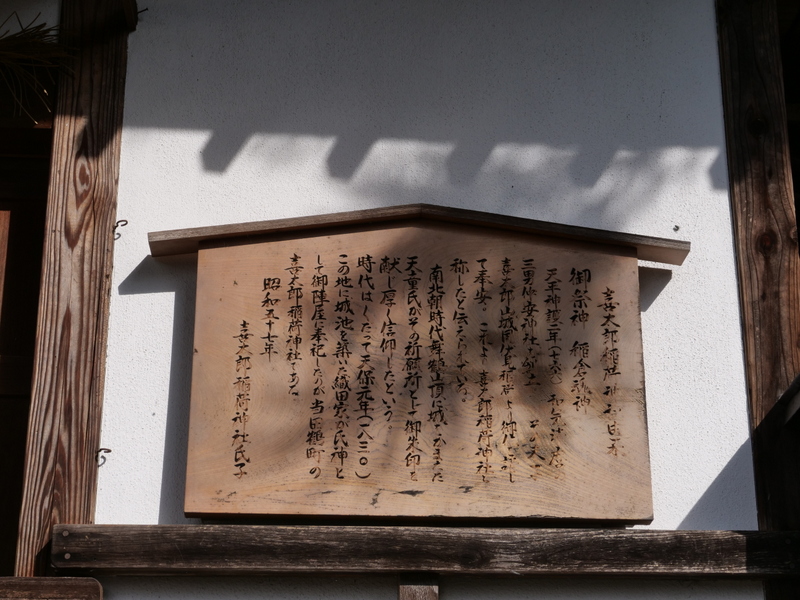 喜太郎稲荷神社由来
御祭神 稲倉魂神
天平神護二年(七六六)
三男 安神社
喜太郎 稲荷 御
て奉安 これより喜太郎稲荷神社と
称したと伝えられている。
南北朝時代舞鶴山頂に城をかまえた
天童氏がその祈願所として御朱印を
献じ厚く信仰したという。
時代はくだって天保元年(一八三〇)
この地に城池を築いた織田家が氏神と
して御陣屋に奉祀したのが当田鶴町の
喜太郎稲荷神社である。
昭和五十七年
喜太郎稲荷神社氏子